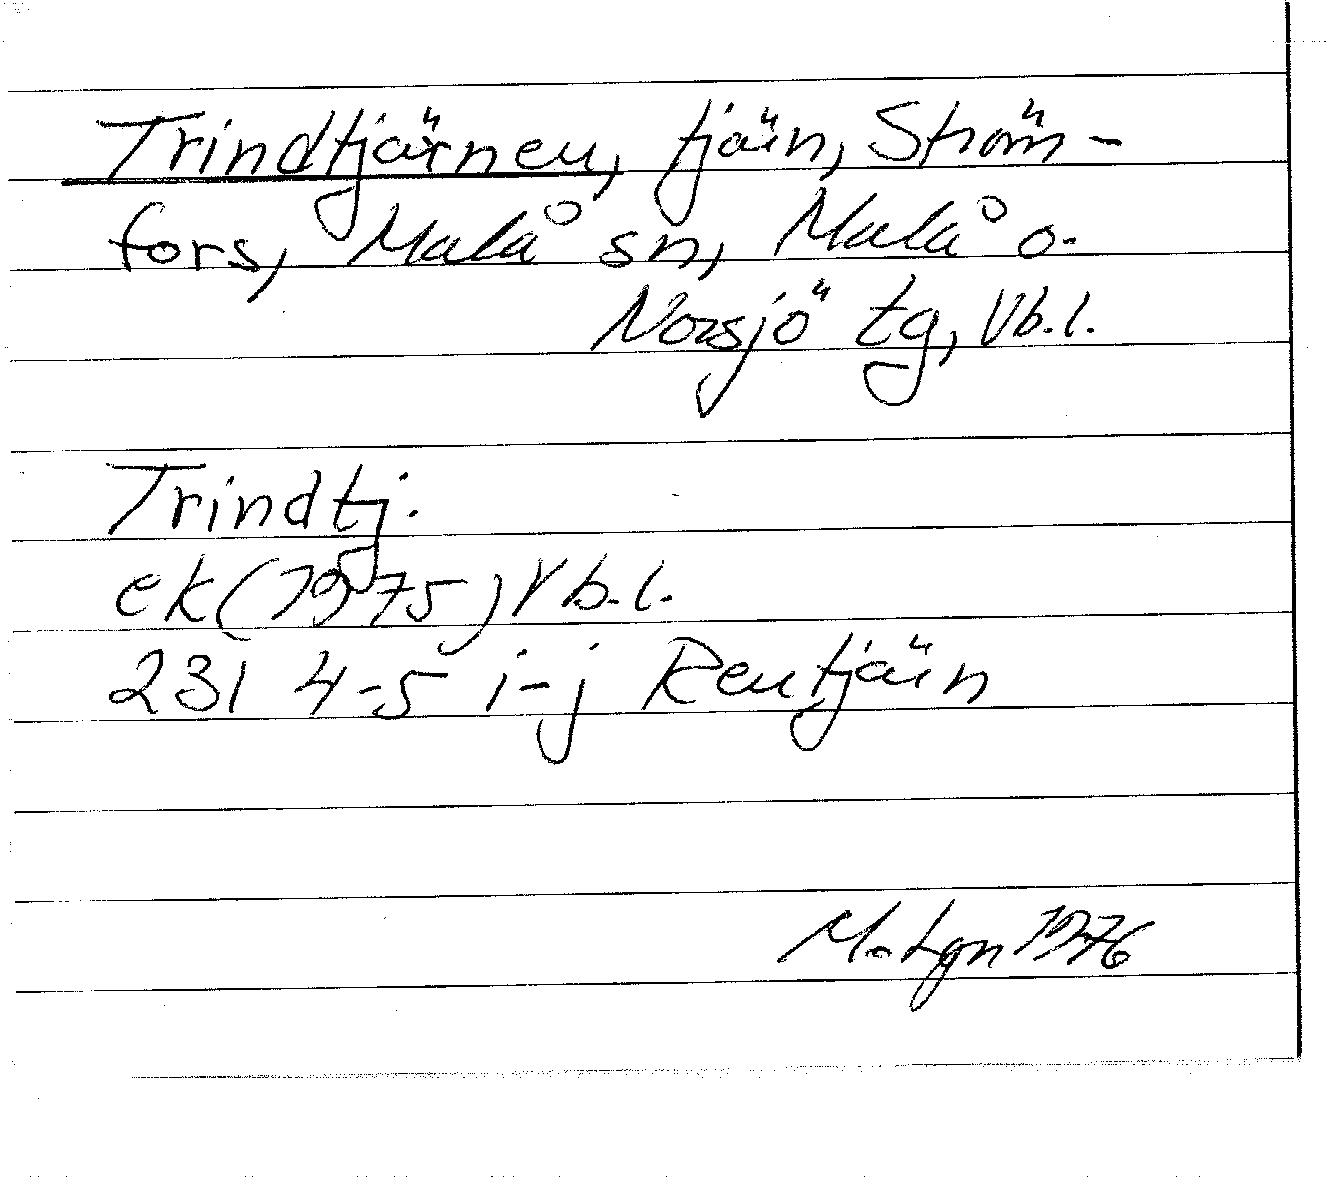 Trindtjärnen, tjärn, Ström-
fors, Malå sn, Malå o.
Norsjö tg, Vb.l.
Trindtj.
ek (1975) Vb.l.
23I 4-5 i-j Rentjärn
1976